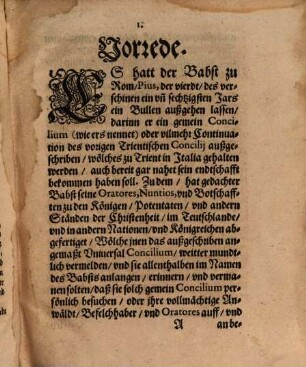 1.
Vorrede.
ES hatt der Babst zu
Rom/Pius, der vierdt/des ver-
schinen ein vñ sechtzigsten Jars
ein Bullen außgehen lassen/
darinn er ein gemein Conci-
lium (wie ers nennet) oder vilmehr Continua-
tion des vorigen Trientischen Concilij außge-
schriben/wölches zu Trient in Italia gehalten
werden/auch bereit gar nahet sein endtschafft
bekommen haben soll. Zudem/hat gedachter
Babst seine Oratores, Nuntios, vnd Botschaff-
ten zu den Königen/Potentaten/vnd andern
Ständen der Christenheit/im Teutschlande/
vnd in andern Nationen/vnd Königreichen ab-
gefertiget/Wölche jnen das außgeschriben an-
gemaßt Vniuersal Concilium, weitter mundt-
lich vermelden/vnd sie allenthalben im Namen
des Babsts anlangen/erinnern/vnd verma-
nen solten/daß sie solch gemein Concilium per-
sönlich besuchen/oder ihre vollmächtige An-
wäldt/Befelchhaber/vnd Oratores auff/vnd
A an be-